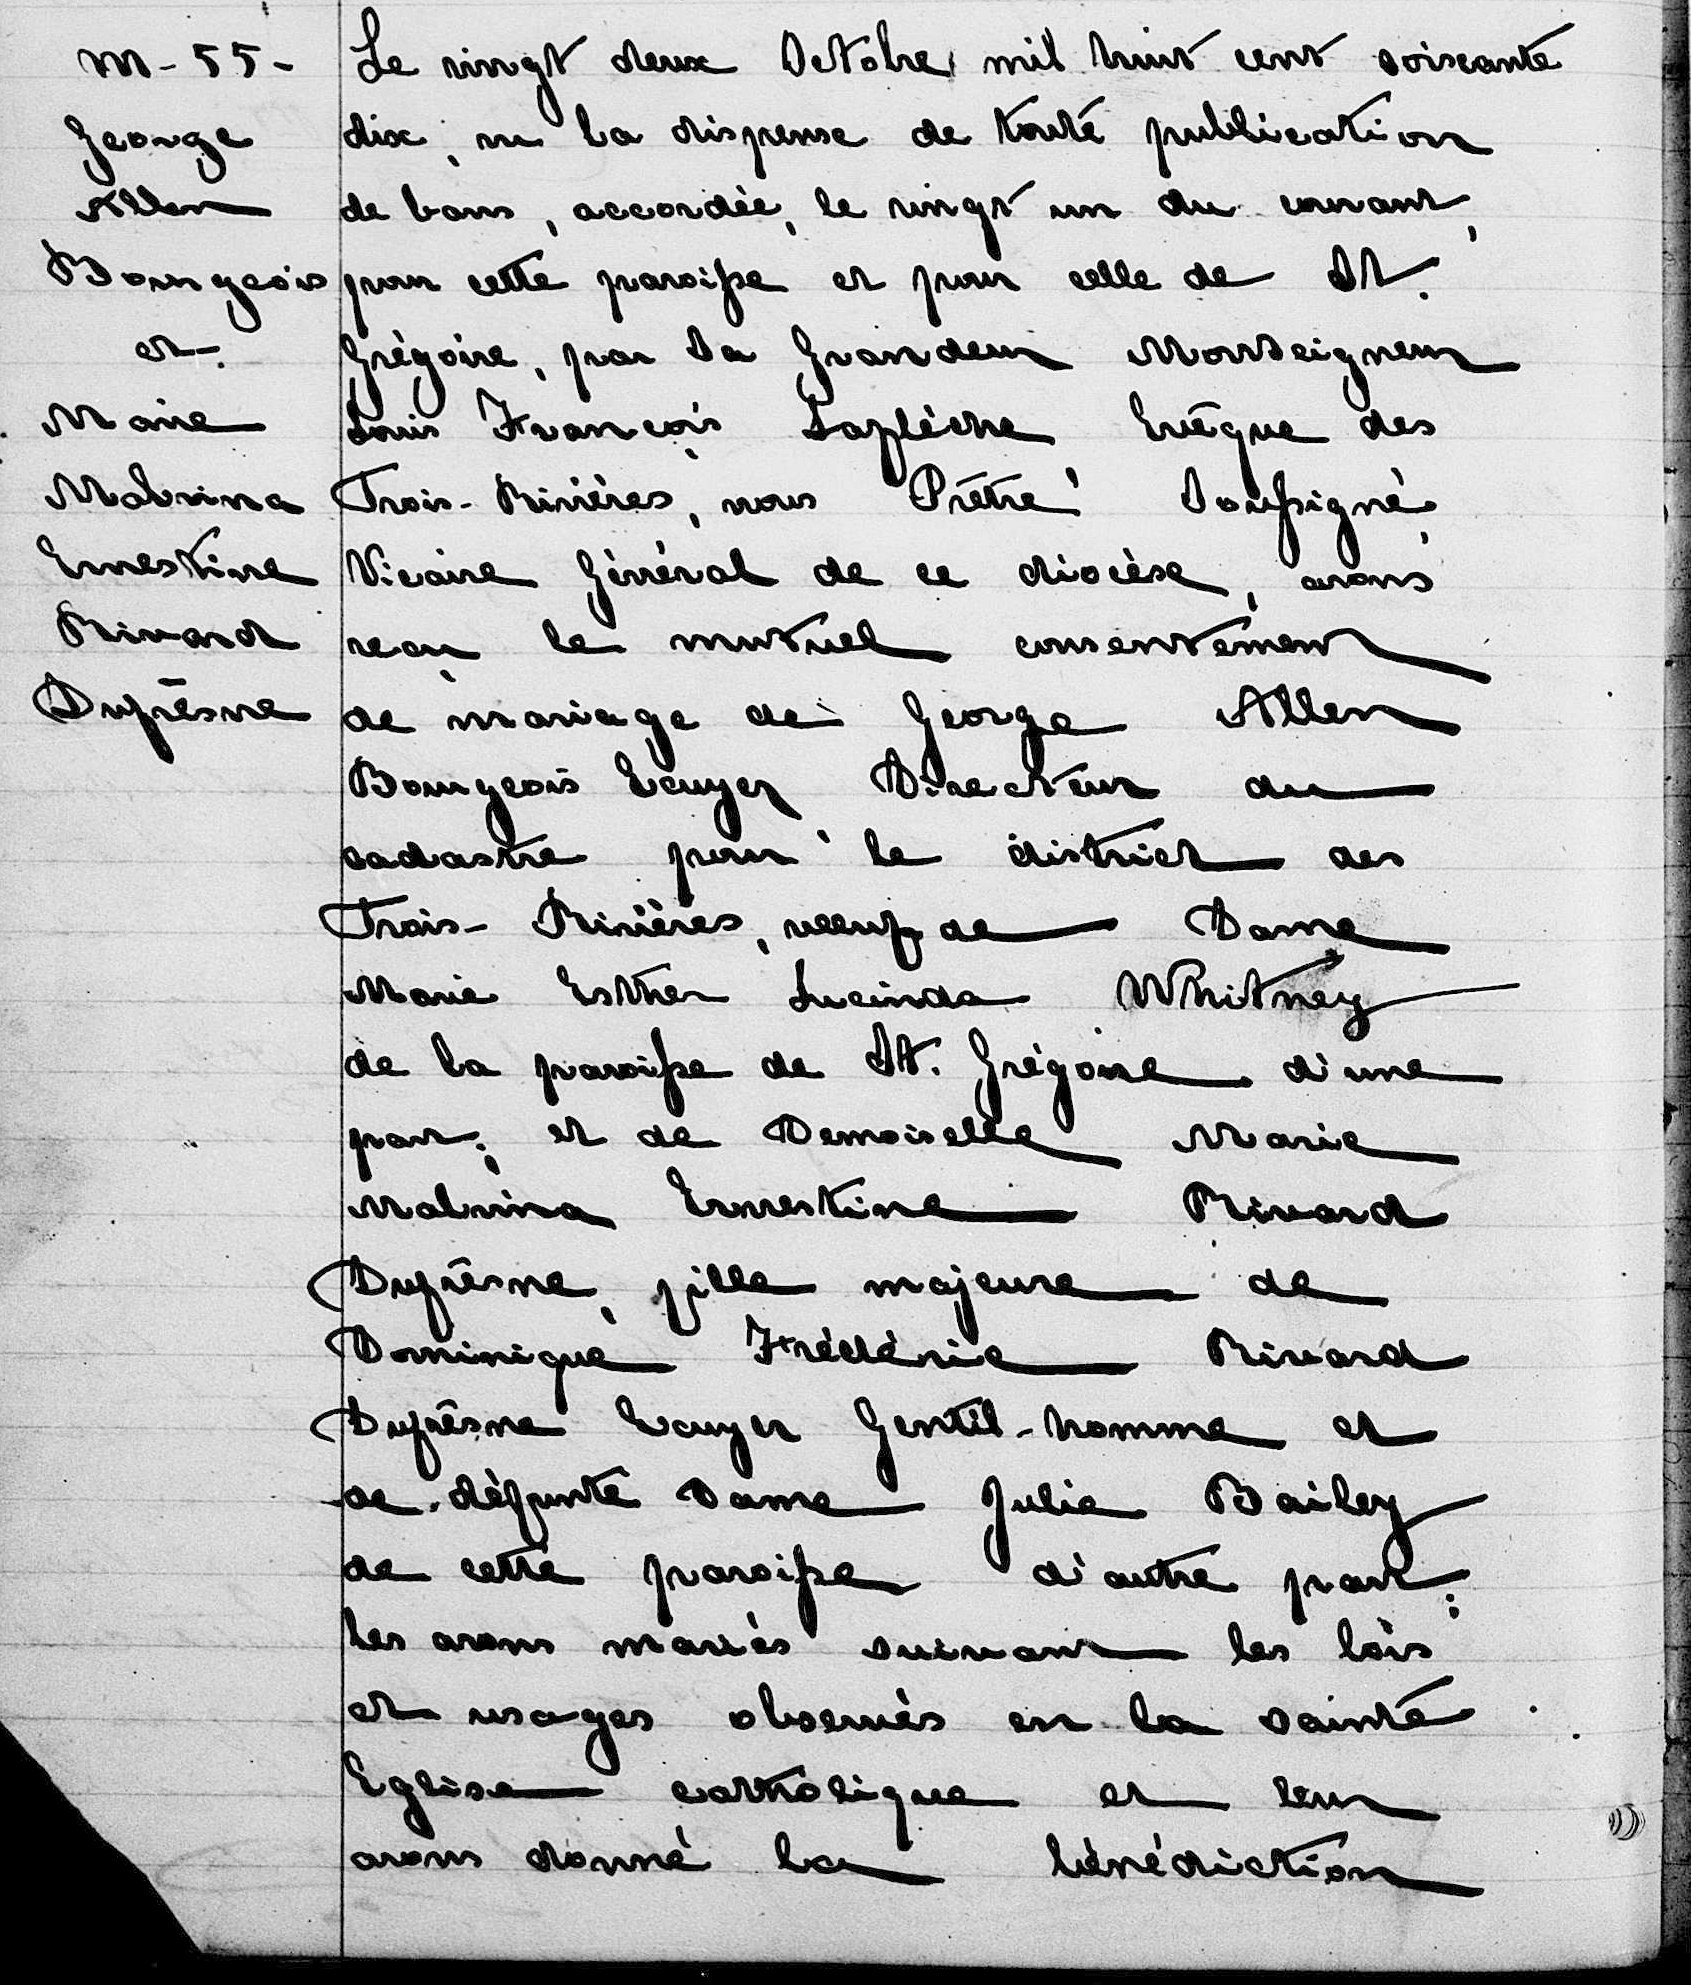 M - 55 -
George
Allen
Bourgeois
et.
Marie
Malvina
Ernestine
Rivard
Dufrèsne
Le vingt deux Octobre mil huit cent soixante
dix, vu la dispense de toute publication
de bans, accordée, le vingt un du courant,
pour cette paroisse et pour celle de St.
Grégoire, par Sa Grandeur Monseigneur
Louis François Laflèche Evêque des
Trois-Rivières, nous Prêtre Soussigné,
Vicaire Général de ce diocèse, avons
reçu le mutuel consentement
de mariage de George Allen
Bourgeois Ecuyer Directeur du
cadastre pour le district des
Trois-Rivières, veuf de Dame
Marie Esther Lucinda Whitney
de la paroisse de St. Grégoire d'une
part; et de Demoiselle Marie
Malvina Ernestine Rivard
Dufrèsne, fille majeure de
Dominique Frédéric Rivard
Dufrèsne Ecuyer Gentil-homme et
de défunte Dame Julie Bailey
de cette paroisse d'autre part;
les avons mariés suivant les lois
et usages observés en la sainte
Eglise catholique et leur
avons donné la bénédiction